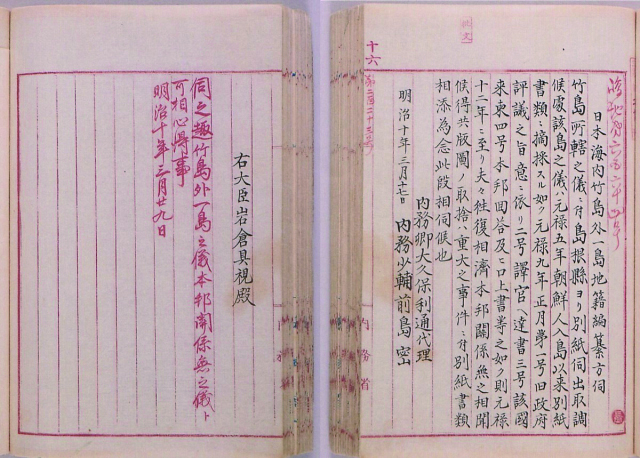 十六
日本海内竹島外一島地籍編纂方伺
竹島所轄之儀ニ付島根縣ヨリ別紙伺出取調
候處該島之儀ハ元禄五年朝鮮人入島以来別紙
書類ニ摘採スル如ク元禄九年正月第一号旧政府
評議之旨意ニ依リ二号譯官ヘ達書三号該國
来柬四号本邦回答及ヒ口上書等之如ク則元禄
十二年ニ至リ夫々往復相濟本邦関係無之相聞
候得共版圖ノ取捨ハ重大之事件ニ付別紙書類
相添為念此段相伺候也
明治十年三月十七日
内務卿大久保利通代理
内務少輔前島密
右大臣岩倉具視殿
伺之趣竹島外一島之儀本邦関係無之儀ト
可相心得事
明治十年三月廿九日
内務省